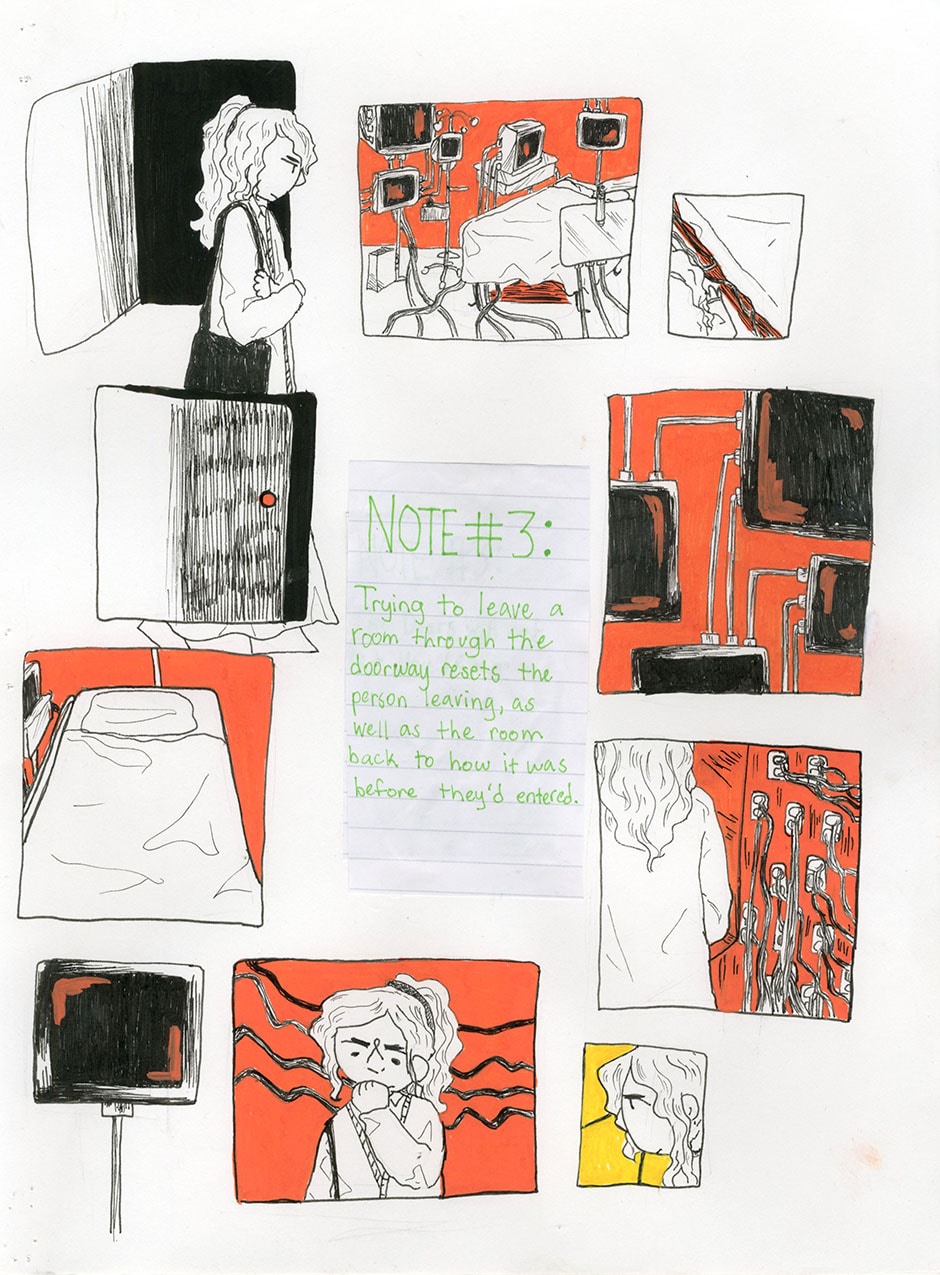 NOTE #3:
Trying to leave a
room through the
doorway resets the
person leaving, as
well as the room
back to how it was
before they'd entered.